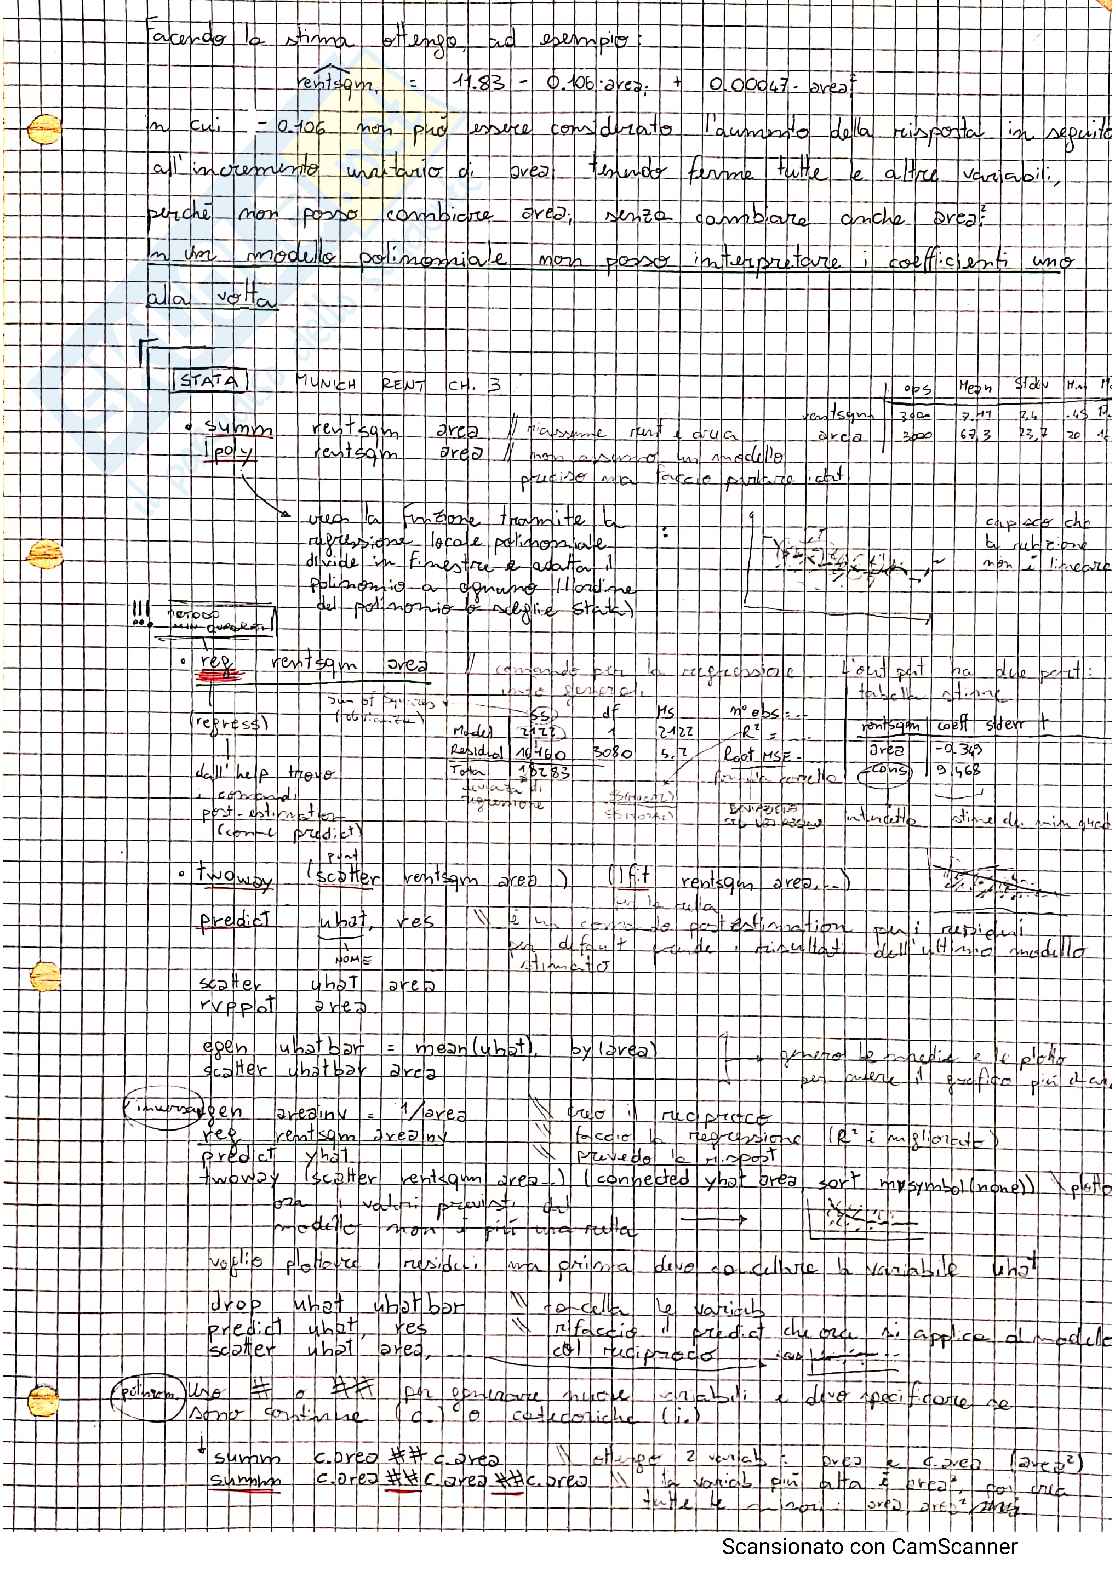 Facendo la stima ottengo, ad esempio:
rentsqm_i = 11.83 - 0.106·area_i + 0.00047·area_i²
in cui -0.106 non può essere considerato l'aumento della risposta in seguito
all'incremento unitario di area_i tenendo ferme tutte le altre variabili,
perché non posso cambiare area_i senza cambiare anche area_i²
In un modello polinomiale non posso interpretare i coefficienti uno
alla volta
STATA MUNICH RENT CH. 3
obs Mean Stdev Min
rentsqm 3000 7.11 2,4 .45
area 3000 67,3 23,7 20
• summ rentsqm area // riassume rent e area
lpoly rentsqm area // non assumo un modello
preciso ma faccio parlare i dati
crea la funzione tramite la
regressione locale polinomiale
divide in finestre e adatta il
polinomio a ognuno (l'ordine
del polinomio lo sceglie Stata)
capisco che
la funzione
non è lineare
!!! METODO
MIN QUADRATI
• reg rentsqm area // comando per la regressione L'output ha due parti:
info generali tabella stime
(regress)
sum of squares
SS df MS n° obs = ...
Model 2122 1 2122 R² = ...
Residual 16160 3080 5,2 Root MSE -
Total 18283
devianza di
regressione
rentsqm coeff stderr t
area -0.349
_cons 9,468
intercetta stime dei min quad
dall'help trovo
i comandi
post-estimation
(come predict)
punti
• twoway (scatter rentsqm area ..) (lfit rentsqm area,...)
la retta
predict uhat, res \\ è un comando postestimation per i residui
NOME
per default prende i risultati dell'ultimo modello
stimato
scatter uhat area
rvpplot area
egen uhatbar = mean(uhat), by(area)
scatter uhatbar area
genero le medie e le plotto
per avere il grafico più
inversa
gen areainv = 1/area \\ creo il reciproco
reg rentsqm areainv \\ faccio la regressione (R² è migliorato)
predict yhat \\ prevedo la rispost
twoway (scatter rentsqm area ..) (connected yhat area, sort msymbol(none)) \ plotto
ora i valori previsti dal
modello non è più una retta
voglio plottare i residui ma prima devo cancellare la variabile uhat
drop uhat uhatbar \\ cancella le variab
predict uhat, res \\ rifaccio il predict che ora si applica al modello
scatter uhat area, col reciproco
polinom.
Uso # o ## per generare nuove variabili e devo specificare se
sono continue (c.) o categoriche (i.)
summ c.area ## c.area // ottengo 2 variab: area e c.area (area²)
summ c.area ## c.area ## c.area \\ la variab più alta è area³, poi crea
tutte le minori: area, area²
Scansionato con CamScanner